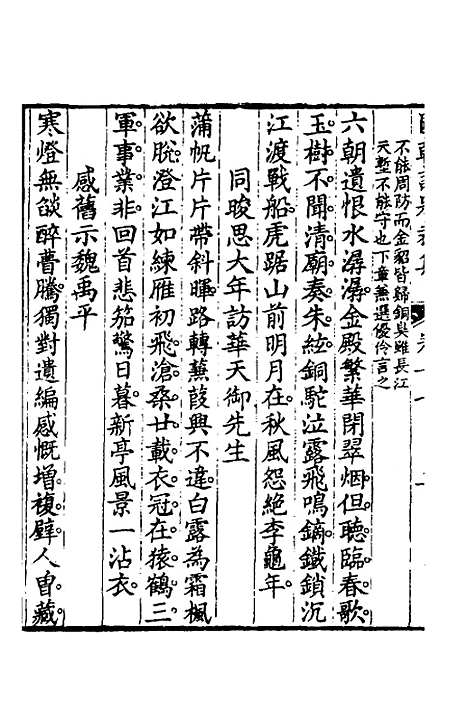 不能周防而金貂皆歸銅臭雖長江
天塹不能守也下章兼選優伶言之
六朝遺恨水潺潺金殿繁華閉翠烟但聽臨春歌
玉樹不聞清廟奏朱絃銅駝泣露飛鳴鏑鐵鎖沉
江渡戰船虎踞山前明月在秋風怨絶李龜年
同晙思大年訪華天御先生
蒲帆片片帶斜暉路轉蒹葭興不違白露為霜楓
欲脫澄江如練雁初飛滄桑廿載衣冠在猿鶴三
軍事業非回首悲笳驚日暮新亭風景一沾衣
感舊示魏禹平
寒燈無燄醉瞢騰獨對遺編感慨增複壁人曽藏